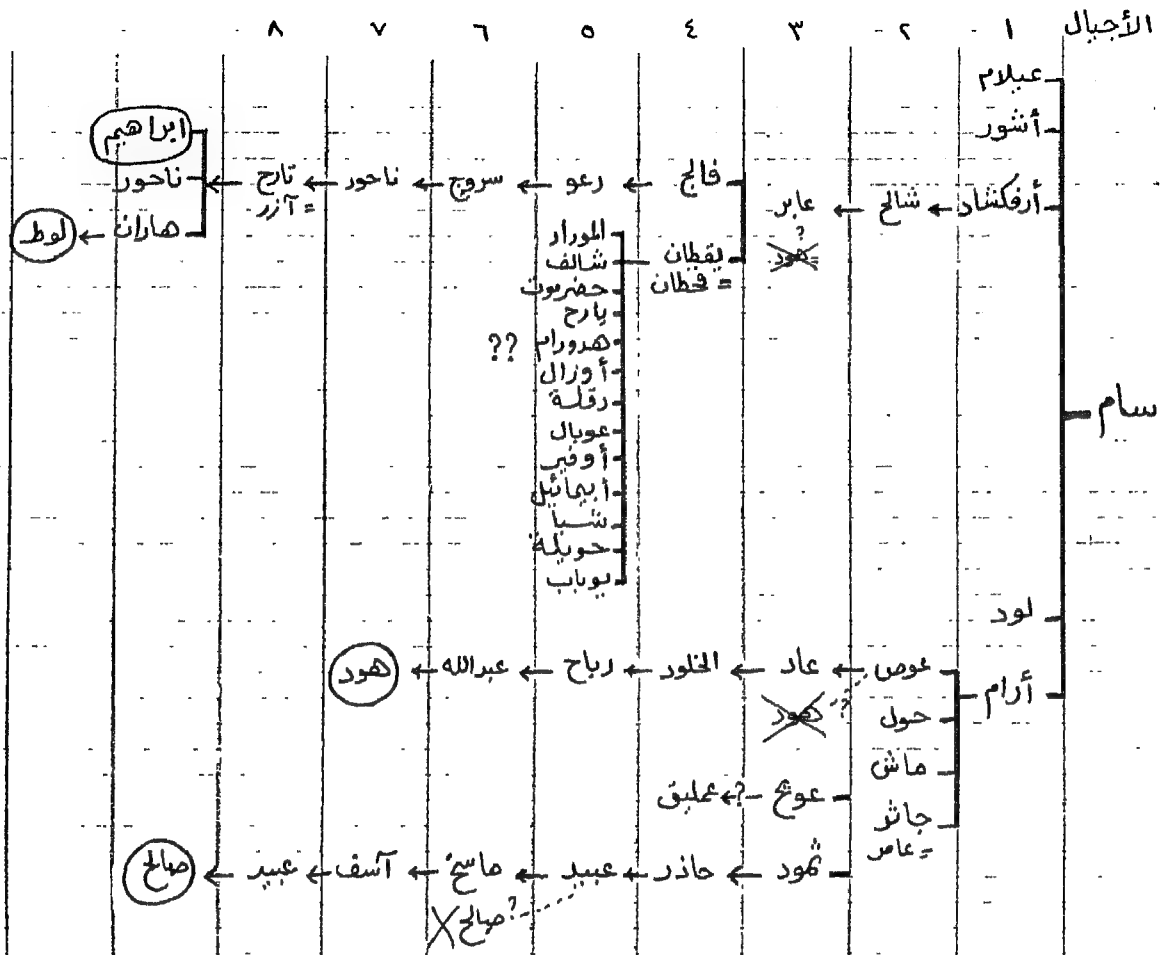 الأجيال ١ ٢ ٣ ٤ ٥ ٦ ٧ ٨
عيلام
أشور
ابراهيم
أرفكشاد ← شالخ ← عابر
؟
=هود
فالج ← رعو ← سروج ← ناحور ← تارح
= آزر
ناحور
هاران ← لوط
يقطان
= قحطان
الموراد
شالف
حضرموت
يارح
هدورام ??
أوزال
دقلة
عوبال
أوفير
أبيمائيل
شبا
حويلة
يوباب
سام
لود
أرام
عوص ← عاد ← الخلود ← رباح ← عبدالله ← هود
؟ هود
حول
ماش
عوج -؟← عمليق
جاثر
= عامر
ثمود ← حاذر ← عبيد ← ماسخ ← آسف ← عبيد ← صالح
؟ صالح X